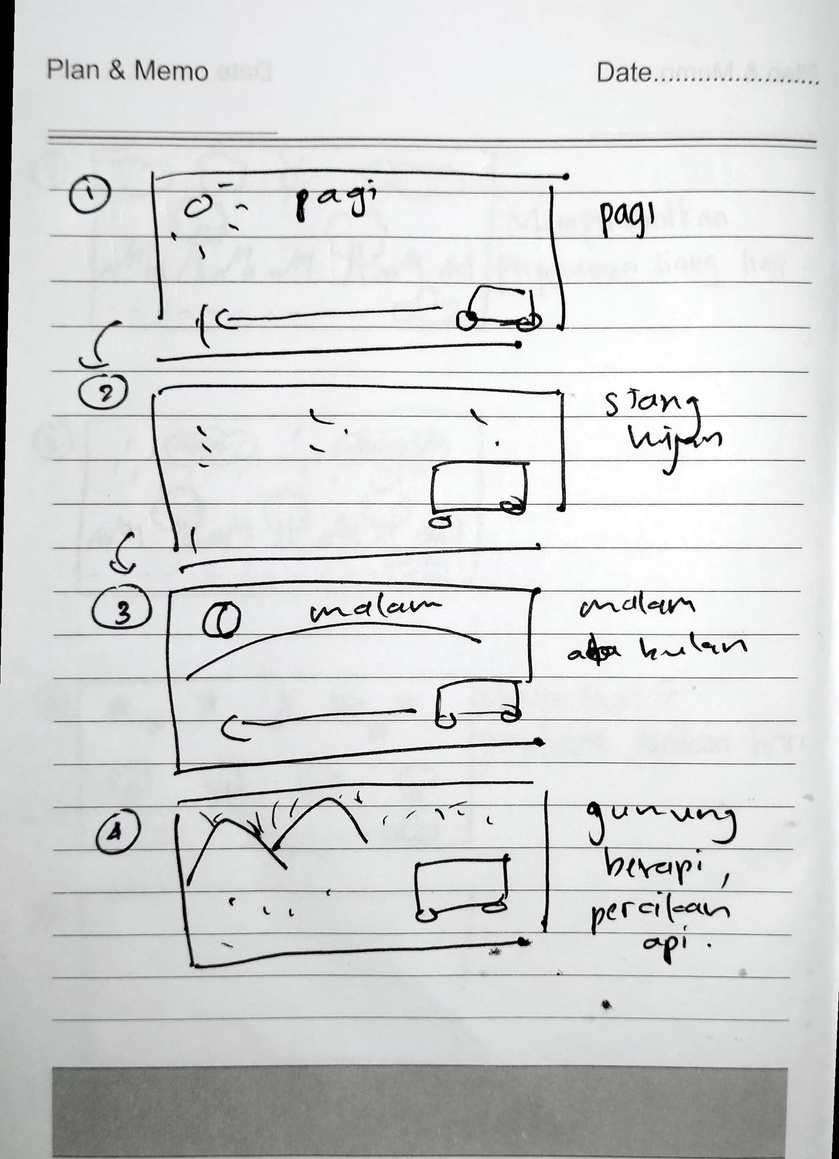 Plan & Memo
Date........................
1
pagi
pagi
2
siang
hujan
3
malam
malam
ada bulan
4
gunung
berapi,
percikan
api.